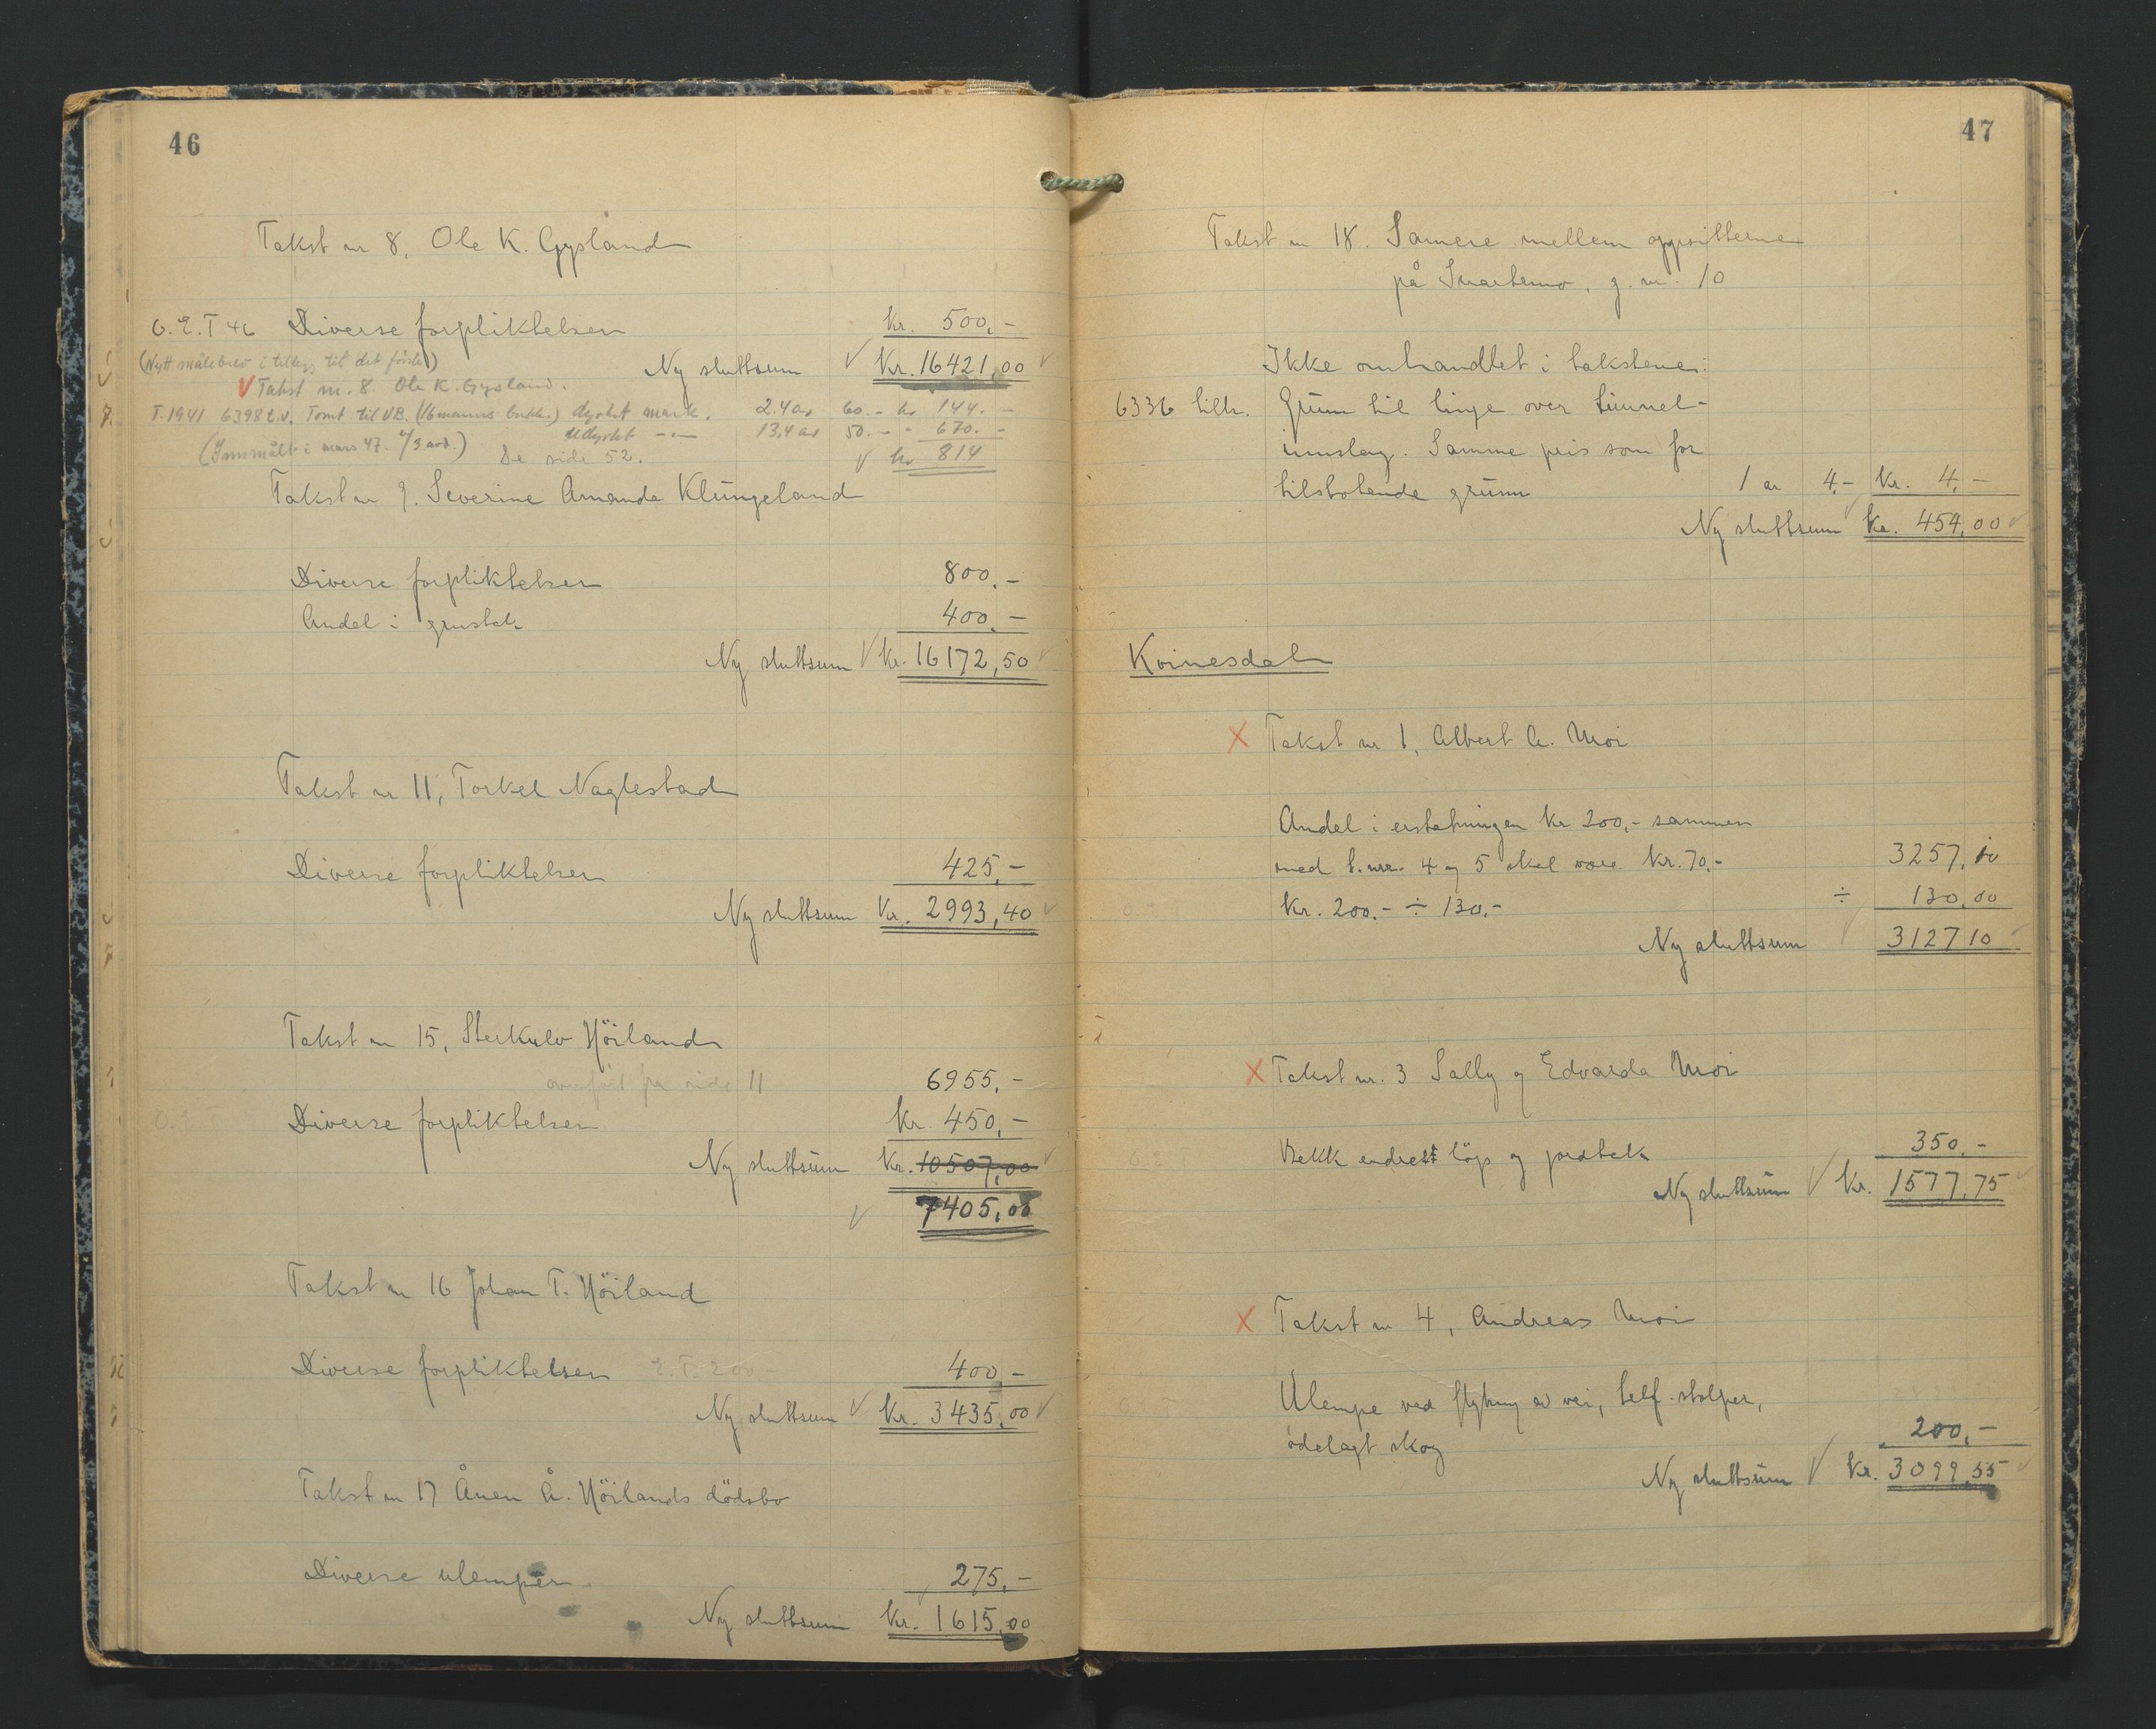 46
Takst nr 8, Ole K. Gysland
O.E.T 46 Diverse forpliktelser Kr. 500,-
(Nytt målebrev i tillegg til det første)
Ny sluttsum Kr. 16421,00
Takst nr. 8. Ole K. Gysland.
T. 1941 6398 t.v. Tomt til VB. (16 manns brakke.) dyrket mark. 2.4 ar 60.- kr 144.-
Udyrket -"- 13,4 ar 50.- " 670.-
(Innmålt i mars 47. 4/3 avd.) Se side 52. kr 814
Takst nr 9. Severine Amanda Klungeland
Diverse forpliktelser 800,-
Andel i grustak 400,-
Ny sluttsum Kr. 16172,50
Takst nr 11, Torkel Naglestad
Diverse forpliktelser 425,-
Ny sluttsum Kr. 2993,40
Takst nr 15, Sterkulv Höiland
overført fra side 11 6955,-
Diverse forpliktelser Kr. 450,-
Ny sluttsum Kr. 10507,00
7405,00
Takst nr 16 Johan T. Höiland
Diverse forpliktelser E.T. 200,- 400,-
Ny sluttsum Kr. 3435,00
Takst nr 17 Ånen Å. Höilands dödsbo
Diverse ulemper 275,-
Ny sluttsum Kr. 1615,00
47
Takst nr 18. Sameie mellem oppsitterne
på Snartemo, g.nr. 10
Ikke omhandlet i takstene:
6336 tilh. Grunn til linje over tunnel-
innslag. Samme pris som for
tilstøtende grunn 1 ar 4,- Kr. 4,-
Ny sluttsum Kr. 454,00
Kvinesdal
X Takst nr 1, Albert A. Moi
Andel i erstatningen kr 200,- sammen
med t.nr. 4 og 5 skal være Kr. 70,- 3257,10
Kr. 200,- ÷ 130,- ÷ 130,00
Ny sluttsum 3127 10
X Takst nr. 3 Sally og Edvarda Moi
Bekk endret løp og jordtak 350,-
Ny sluttsum Kr. 1577,75
X Takst nr 4, Andreas Moi
Ulempe ved flytning av vei, telf. stolper,
ødelagt skog 200,-
Ny sluttsum Kr. 3099,55